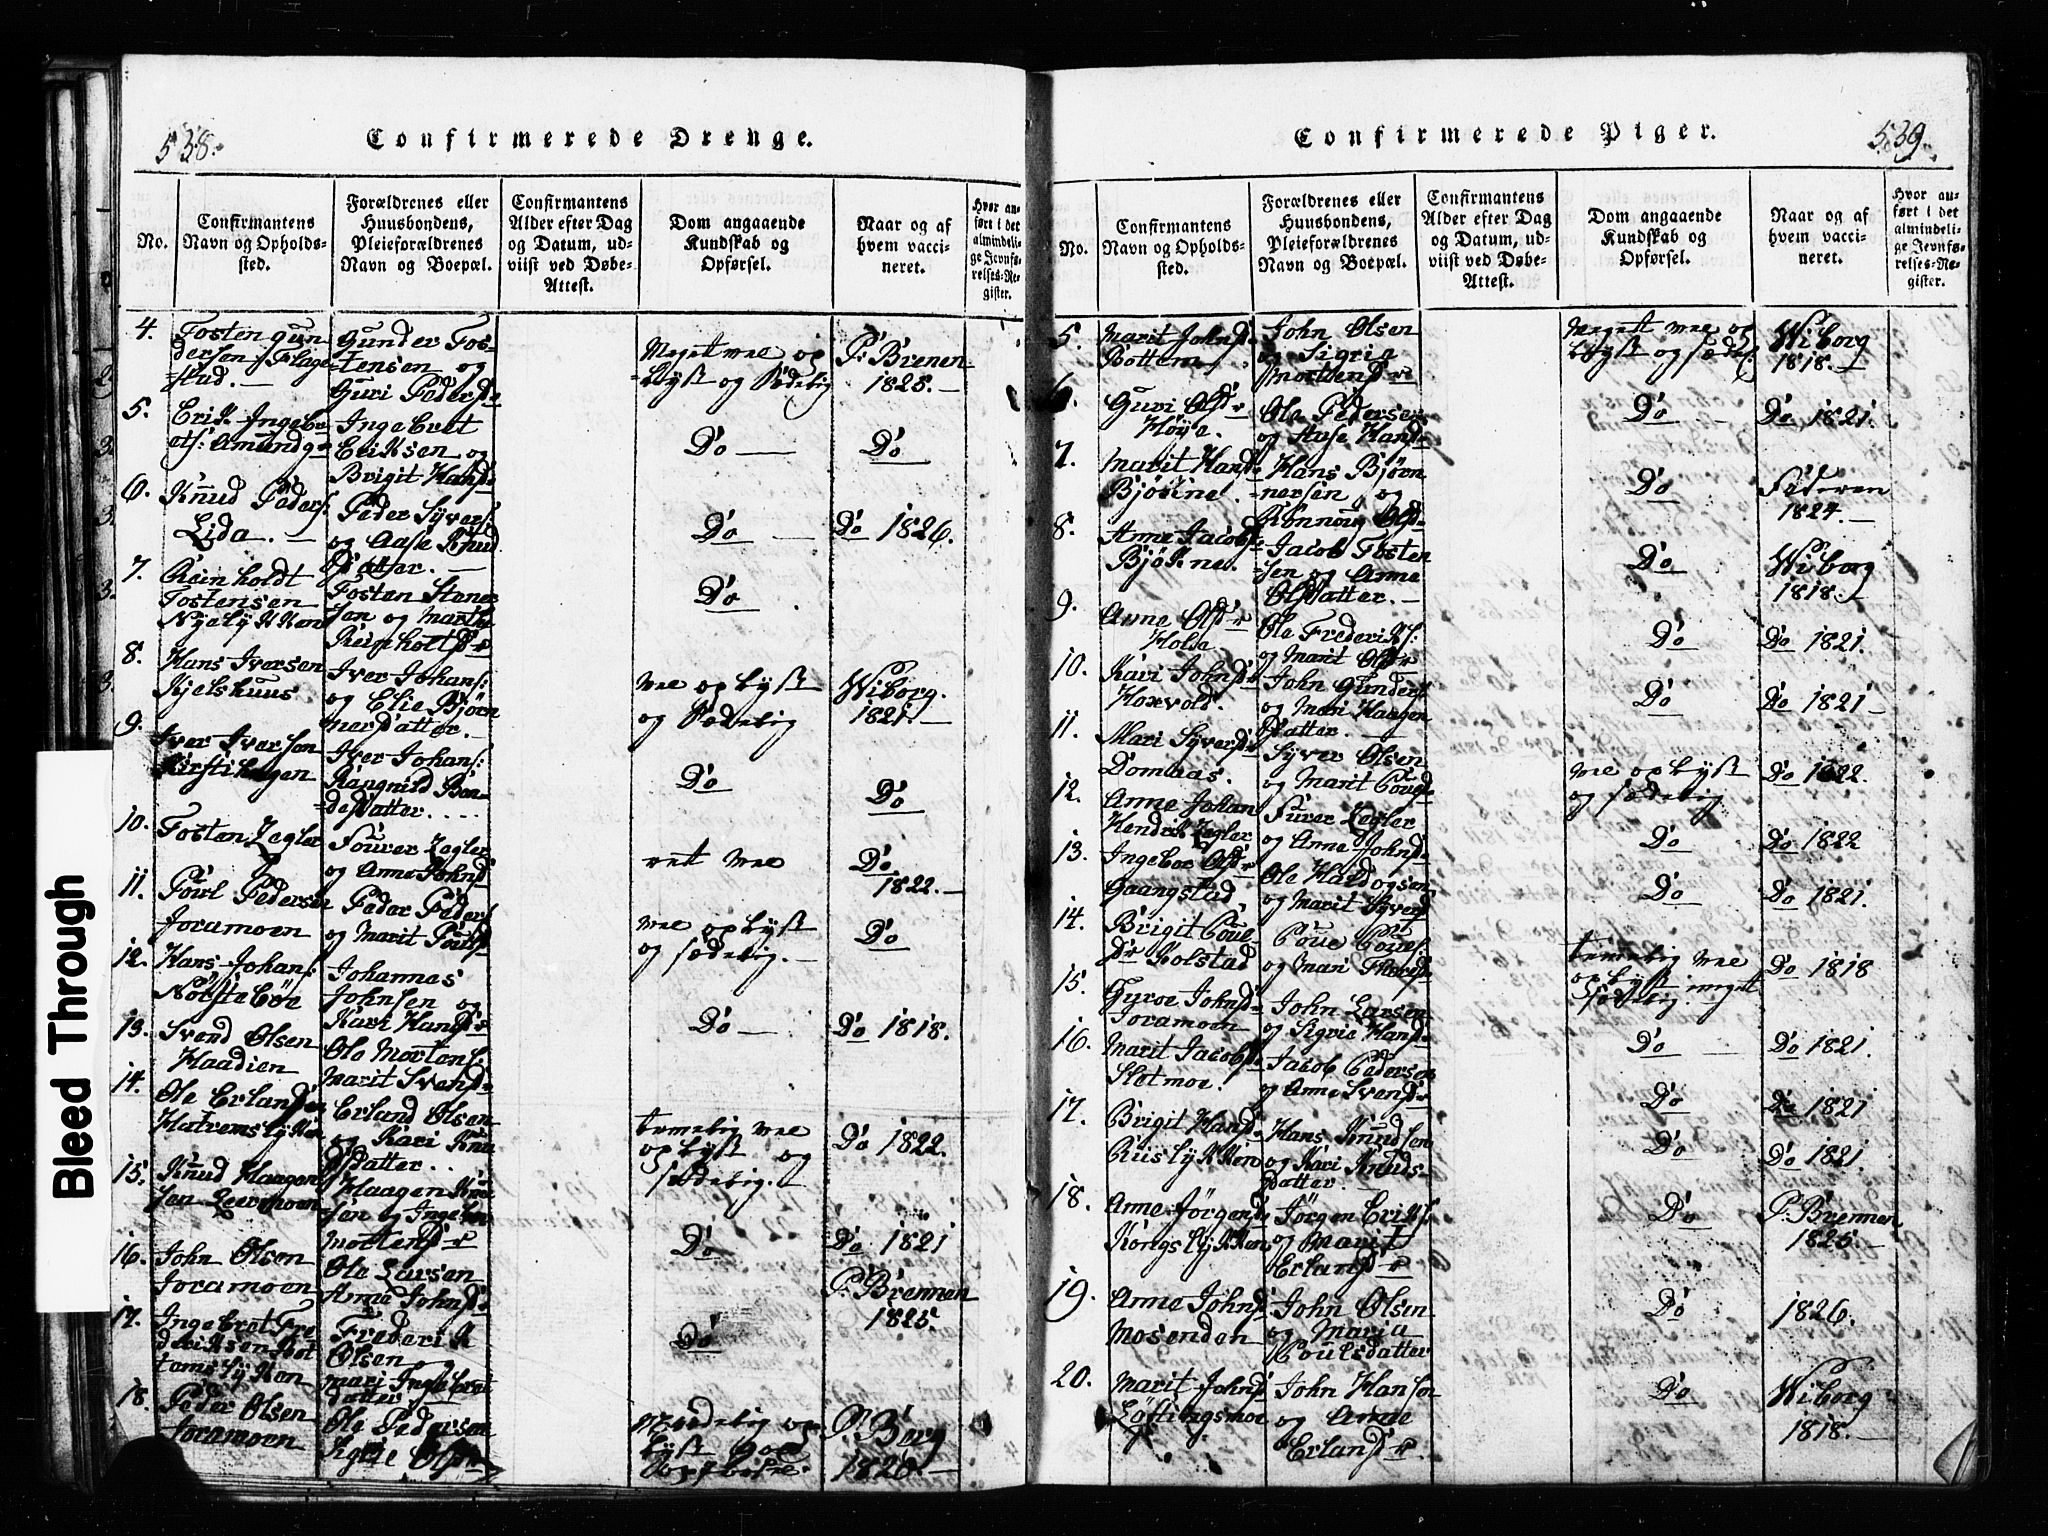 538.
Confirmerede Drenge.
No.
Confirmantens
Navn og Opholds-
sted.
Forældrenes eller
Huusbondens,
Pleieforældrenes
Navn og Boepæl.
Confirmantens
Alder efter Dag
og Datum, ud-
viist ved Døbe-
Attest.
Dom angaaende
Kundskab og
Opførsel.
Naar og af
hvem vacci-
neret.
Hvor an-
ført i det
almindeli-
ge Jevnfø-
relses-Re-
gister.
4.
Tosten Gun
dersen Flage-
stud.
Gunder Tos-
tensen og
Guri Pedersd
Meget vel op
lyst og Sædelig
P: Brenen
1825.
5.
Erik Ingebr
Ingebret
Eriksen og
Brigit Hansd
Do
Do
6.
Knud Peders:
Lida.
Peder Syvers
og Aase Knud
Datter.
Do
Do 1826.
7.
Reinholdt
Tostensen
Nyelykken
Tosten Stener
sen og Marthe
Do
8.
Hans Iversen
Kjelshuus
Iver Johans:
og Elie Bjørn
nersDatter.
vel oplyst
og Sædelig
Wiborg.
1821.
9.
Iver Iversen
Kirstihagen
Iver Johans:
Rangnild Bon-
desDatter....
Do
Do
10.
Tosten Zegler
Fourer Zegler
og Anne Johnsd
ret vel
Do
1822.
11.
Poul Pedersen
Joramoen
Peder Peders
og Marit Poulsd
vel oplyst
og sædelig.
Do
12.
Hans Johans:
Nørsteböe
Johannes
Johnsen og
Kari Hansdr
Do
Do 1818.
13.
Svend Olsen
Haadien
Ole Mortens:
Marit Svensd
14.
Ole Erlands
Erland Olsen
og Kari Knu
Datter..
temelig vel
oplyst og
sædelig.
Do 1822.
15.
Knud Haagen
sen
Haagen Knu
sen og Ingebor
Mortensdr
Do
Do 1821
16.
John Olsen
Joramoen
Ole Larsen
Anne Johnsd
P: Brennen
1825.
17.
Ingebret Fre
deriksen Bot
temslykken
Frederik
Olsen og
Mari Ingebret
datter
Do
18.
Peder Olsen
Joramoen
Ole Pedersen
Sigrie Olsd
P: Berg
1820.
539.
Confirmerede Piger.
No.
Confirmantens
Navn og Opholds-
sted.
Forældrenes eller
Huusbondens,
Pleieforældrenes
Navn og Boepæl.
Confirmantens
Alder efter Dag
og Datum, ud-
viist ved Døbe-
Attest.
Dom angaaende
Kundskab og
Opførsel.
Naar og af
hvem vacci-
neret.
Hvor an-
ført i det
almindeli-
ge Jevnfø-
relses-Re-
gister.
5.
Marit Johnsd
Bottem
John Olsen
og Sigrie
Mortensdr
Meget vel op
lyst og sædel
Wiborg
1818.
6.
Guri Olsdr
Høye.
Ole Pedersen
og Aase Hansd
Do
Do 1821.
7.
Marit Hansd
Hans Bjørn
nersen og
Rønnoug Olsd
Do
Federen
1824.
8.
Anne Jacobs
Bjøkne.
Jacob Tosten
sen og Anne
OlsDatter.
Do
Wiborg
1818.
9.
Anne Olsdr
Holde
Ole Frederiks:
og Marit Olsdr
Do
Do 1821.
10.
Kari Johnsd
Hoxvold.
John Gunders
og Mari Haagen
Datter.
Do
Do 1821
11.
Mari Syversd
Domaas.
Syver Olsen
og Marit Pouls
vel oplyst
og sædelig
Do 1822.
12.
Anne Johan
Hendrik Zegler
Furer Zegler
og Anne Johnsd
Do
Do 1822
13.
Ingebor Olsdr
Gaangstad
Ole Haldogsen
og Marit Syversd
Do
Do 1821.
14.
Brigit Poue
Dr Kolstad
Poue Poues
og Mari
temelig vel
oplyst
Sædelig.
Do 1818
15.
Gyroe Johnsd
Joramoen
John Larsen
og Sigrie Hansd
Do
Do 1821.
16.
Marit Jacobsd
Sletmoe.
Jacob Pedersen
og Anne Svensdr
Do
Do 1821
17.
Brigit Hansd
Ruslykken
Hans Knudsen
og Kari Knuds-
datter.
Do
Do 1821.
18.
Anne Jörgensd
Kongslykken
Jörgen Eriks:
og Marit
Erlansdr
Do
P: Brennen
1825.
19.
Anne Johnsd
Mosenden
John Olsen
og Maria
Poulsdatter
Do
1826.
20.
Marit Johnsd
Löftingsmoe
John Hansen
og Anne
Erlansdr.
Do
Wiborg
1818.
Bleed Through